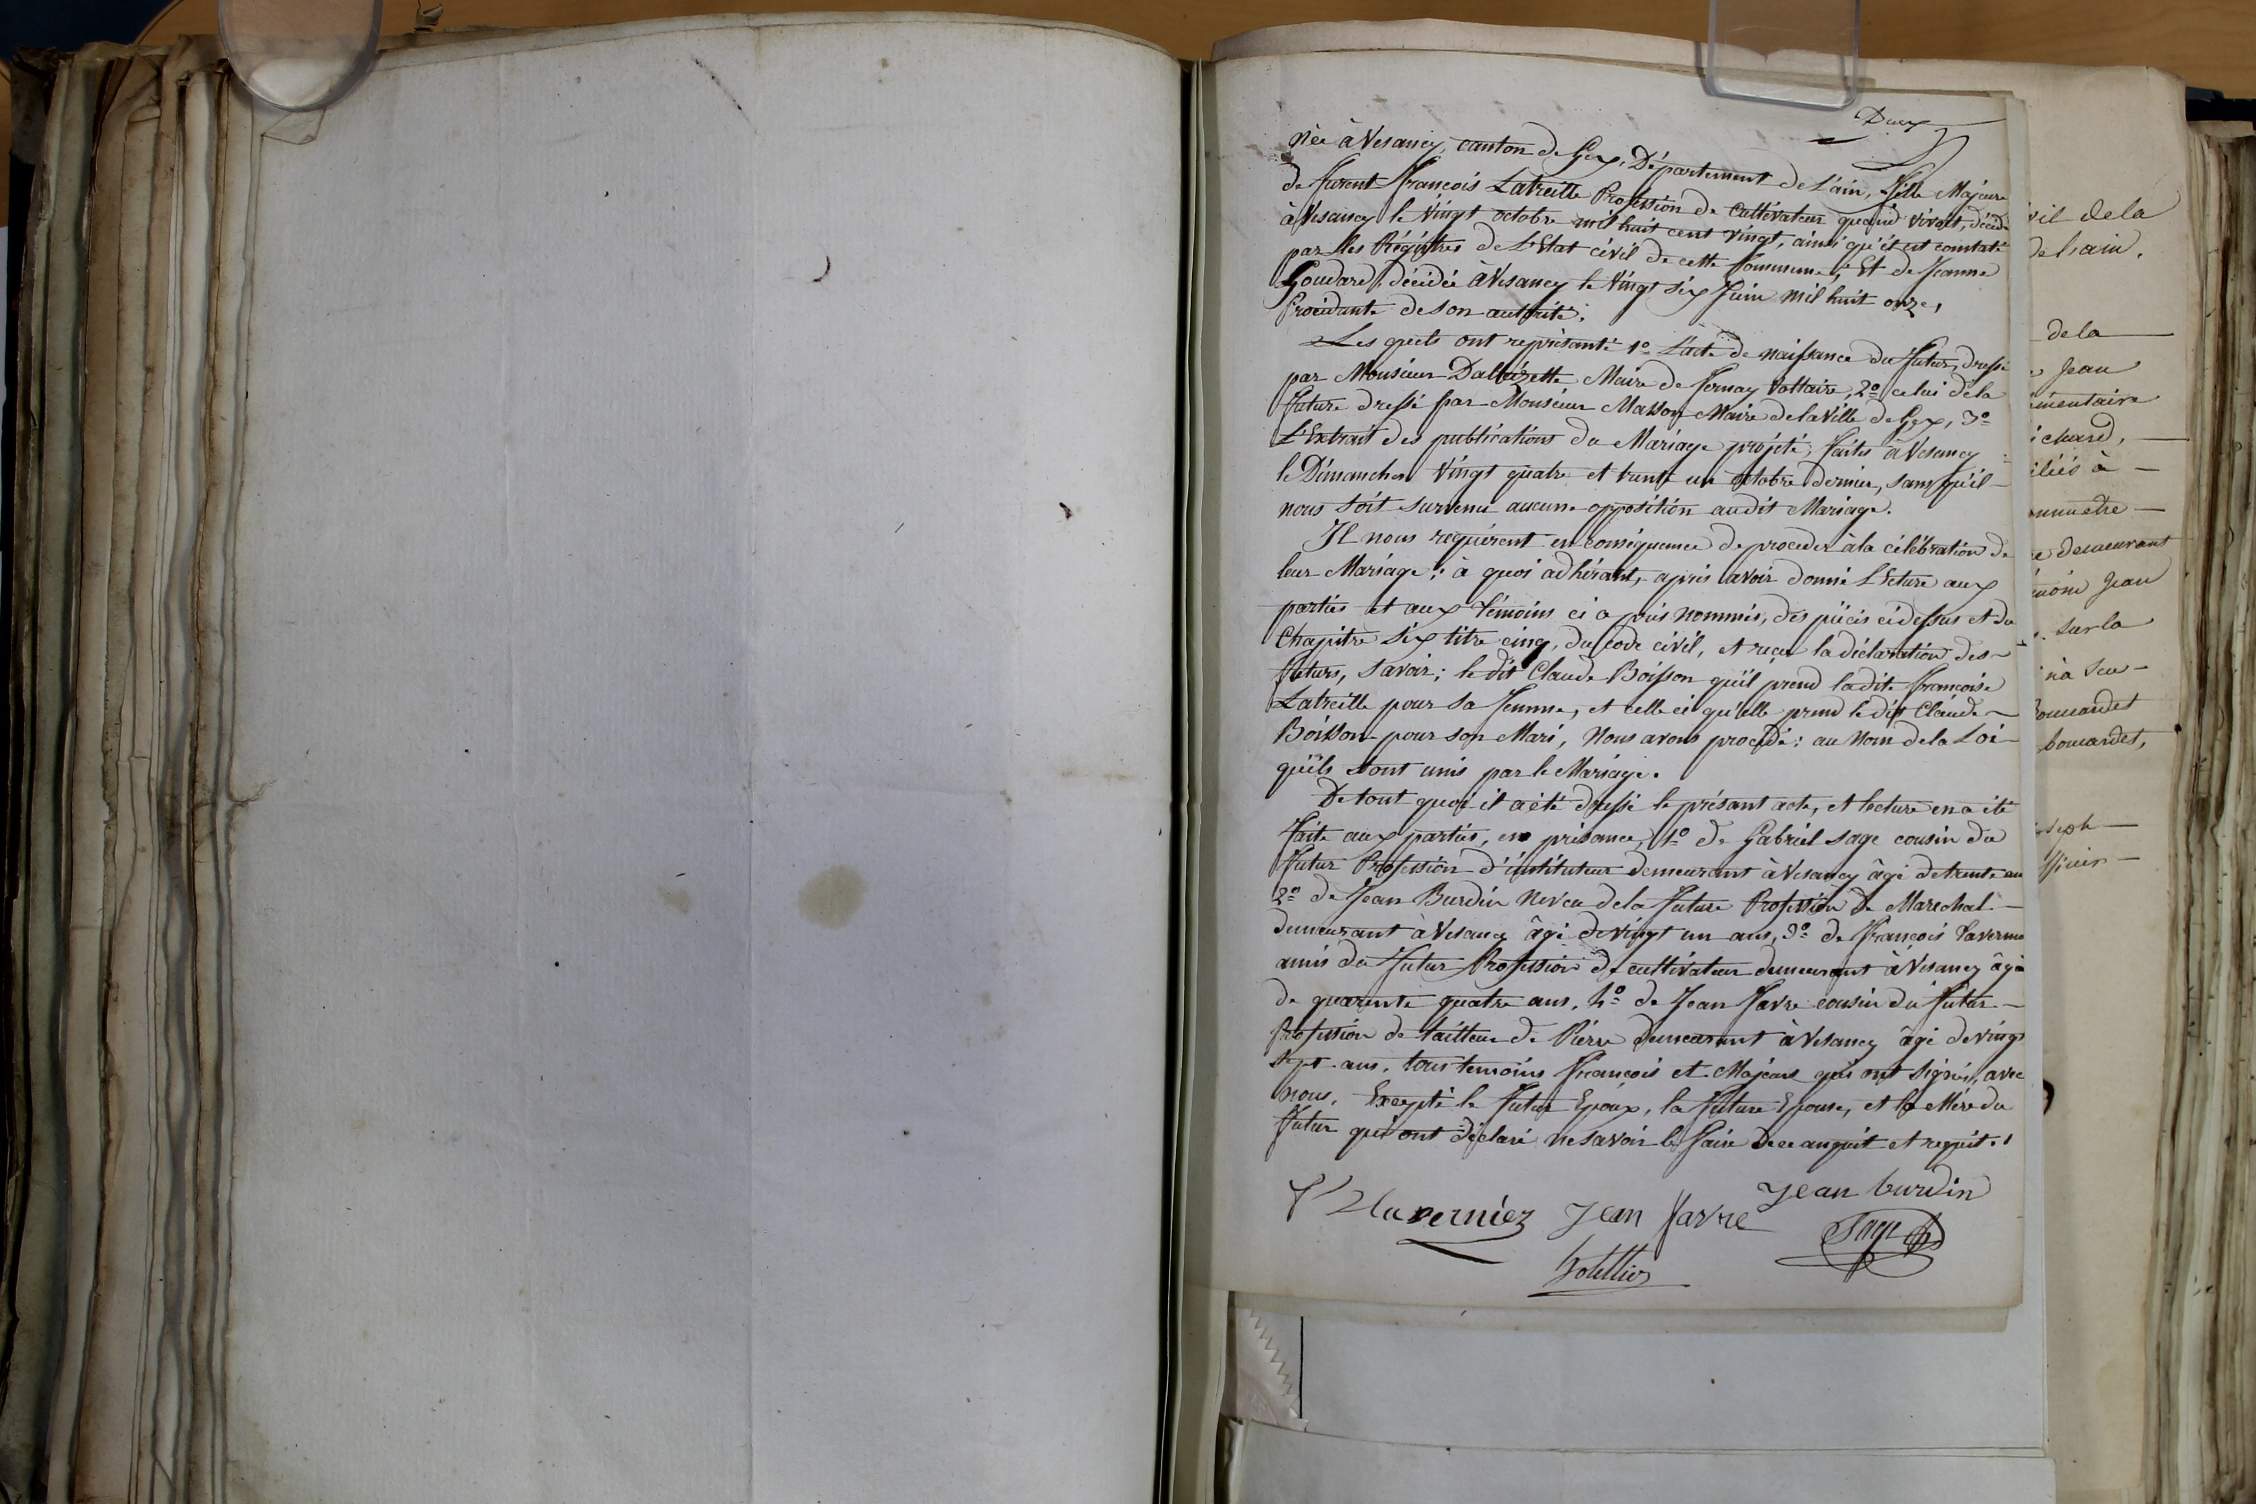 Deux
née à Vesancy, canton de Gex, Département de L'ain, fille Majeure
de furent françois Latreille Profession de Cultivateur quand vivait, décédé
à Vesancy le Vingt octobre mil huit cent vingt, ainsi qu'il est constaté
par les Régistres de L'Etat civil de cette Commune, Et de Jeanne
Goudard, décédée à Vesancy le Vingt six Juin mil huit onze,
Procédante de son autorité.
Les quels ont représanté 1º L'acte de naissance du futur, dressé
par Monsieur Maire de fernay Voltaire, 2º celui de la
future dressé par Monsieur Masson Maire de la Ville de Gex, 3º
L'Extrait des publications du Mariage projété, faites à Vesancy
le Dimanches Vingt quatre et trente un octobre dernier, sans qu'il
nous soit survenu aucune opposition audit Mariage.
Il nous requièrent en conséquence de proceder à la célébration de
leur Mariage ; à quoi adhérant, après avoir donné L'Ecture aux
parties et aux témoins ci après nommés, des pièces ci dessus et du
Chapitre Six titre cinq, du code civil, et reçu la déclaration des
futurs, savoir ; le dit Claude Boisson qu'il prend ladite françoise
Latreille pour sa femme, et celle ci qu'elle prend le dit Claude
Boisson pour son Mari, Nous avons procédé : au Nom de la Loi
qu'ils sont unis par le Mariage.
De tout quoi il a été dressé le présant acte, et lecture en a été
faite aux parties, en présance, 1º de Gabriel sage cousin du
futur Profession d'instituteur demeurant à Vesancy âgé de trente ans
2º de Jean Burdin Neveu de la future Profession de Marechal
demeurant à Vesancy âgé de vingt un ans, 3º de françois
amis du futur Profession de cultivateur demeurant à Vesancy âgé
de quarente quatre ans, 4º de Jean favre cousin du futur
Profession de tailleur de Pierre demeurant à Vesancy âgé de vingt
sept ans, tous temoins françois et Majeurs qui ont signés, avec
nous, Excepté le futur Epoux, la future Epouse, et la Mère du
futur qui ont déclaré ne savoir le faire De ce anquit et requit.
Jean burdin
Jean favre
Sage
vil de la
de l'ain.
de la
Jean
à
demeurant
Jean
sur la